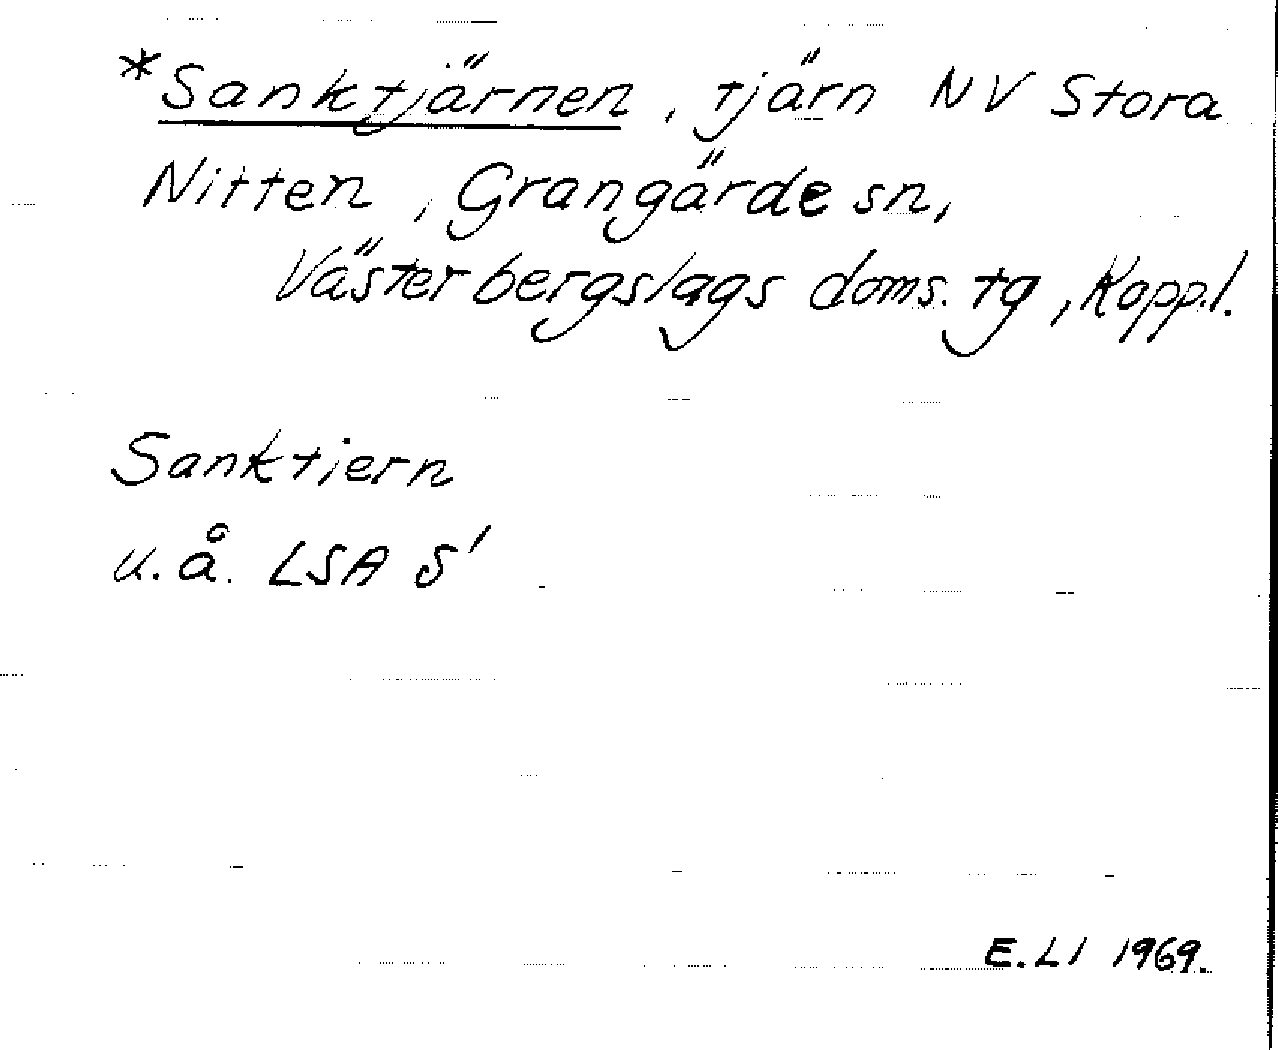 *Sanktjärnen, tjärn NV Stora
Nitten, Grangärde sn,
Västerbergslags doms. tg, Kopp.l.
Sanktiern
u.å. LSA S'
E.LI 1969.